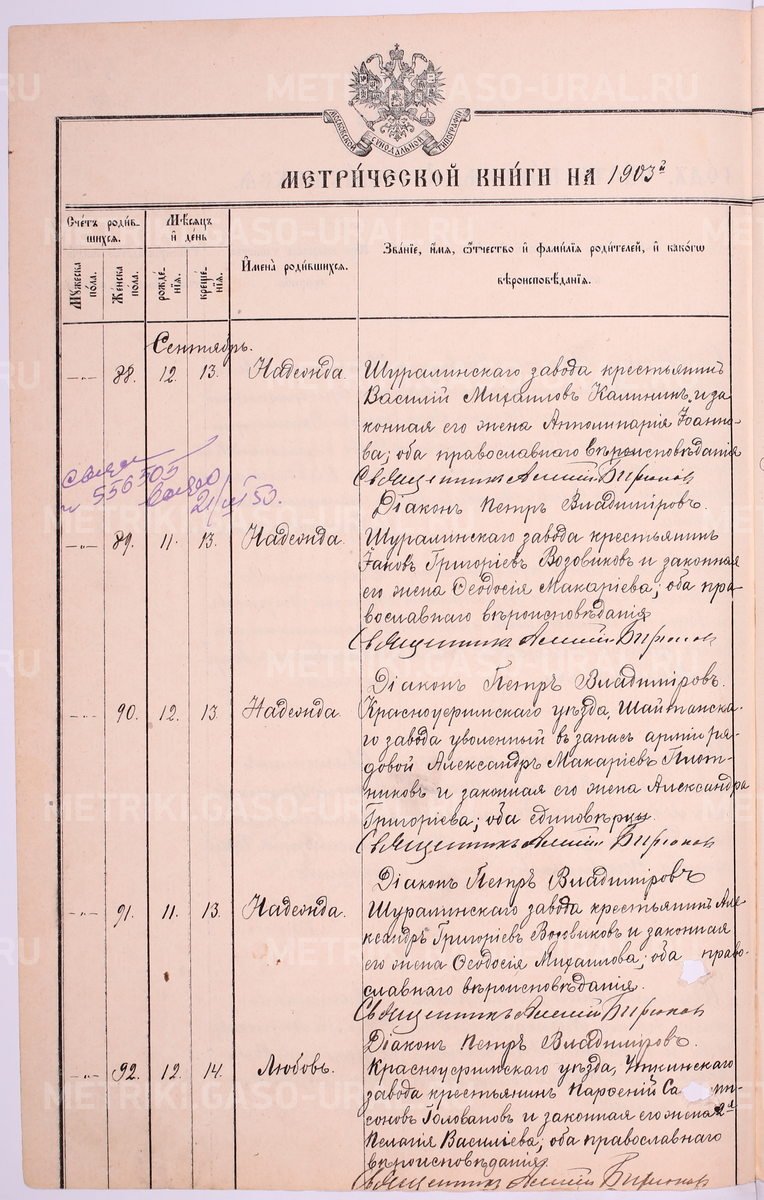 МОСКОВСКОЙ СѴНОДАЛЬНОЙ ТИПОГРАФІИ
МЕТРИ́ЧЕСКОЙ КНИ́ГИ НА 1903й
Сче́тъ роди́вшихся.
Му́жеска по́ла.
Же́нска по́ла.
Мѣ́сяцъ и҆ де́нь
рожде́нїя.
креще́нїя.
И҆мена̀ роди́вшихся.
Зва́нїе, и҆́мя, ѻ҆́тчество и҆ фами́лїя роди́телей, и҆ како́гѡ
вѣроисповѣ́данїя.
Сентябрь.
—„— 88. 12. 13. Надежда.
Шуралинскаго завода крестьянинъ
Василій Михаиловъ Калининъ и за-
конная его жена Аполинарія Іоанно-
ва; оба православнаго вѣроисповѣданія
Священникъ Алексій Бирюков
Діаконъ Петръ Владиміровъ.
556505
21/VI 53.
—„— 89. 11. 13. Надежда.
Шуралинскаго завода крестьянинъ
Іаковъ Григоріевъ Возовиковъ и законная
его жена Ѳеодосія Макаріева; оба пра-
вославнаго вѣроисповѣданія
Священникъ Алексій Бирюков
Діаконъ Петръ Владиміровъ.
—„— 90. 12. 13 Надежда.
Красноуфимскаго уѣзда, Шайтанска-
го завода уволенный въ запасъ арміи ря-
довой Александръ Макаріевъ Плот-
никовъ и законная его жена Александра
Григоріева; оба единовѣрцы.
Священникъ Алексій Бирюков
Діаконъ Петръ Владиміровъ
—„— 91. 11. 13. Надежда.
Шуралинскаго завода крестьянинъ Але-
ксандръ Григоріевъ Возовиковъ и законная
его жена Ѳеодосія Михаилова; оба право-
славнаго вѣроисповѣданія.
Священникъ Алексій Бирюков
Діаконъ Петръ Владиміровъ.
—„— 92. 12. 14. Любовь.
Красноуфимскаго уѣзда, Уткинскаго
завода крестьянинъ Парѳеній
Головановъ и законная его жена 2я
Пелагія Василіева; оба православнаго
вѣроисповѣданія
Священникъ Алексій Бирюков
METRIKI.GASO-URAL.RU